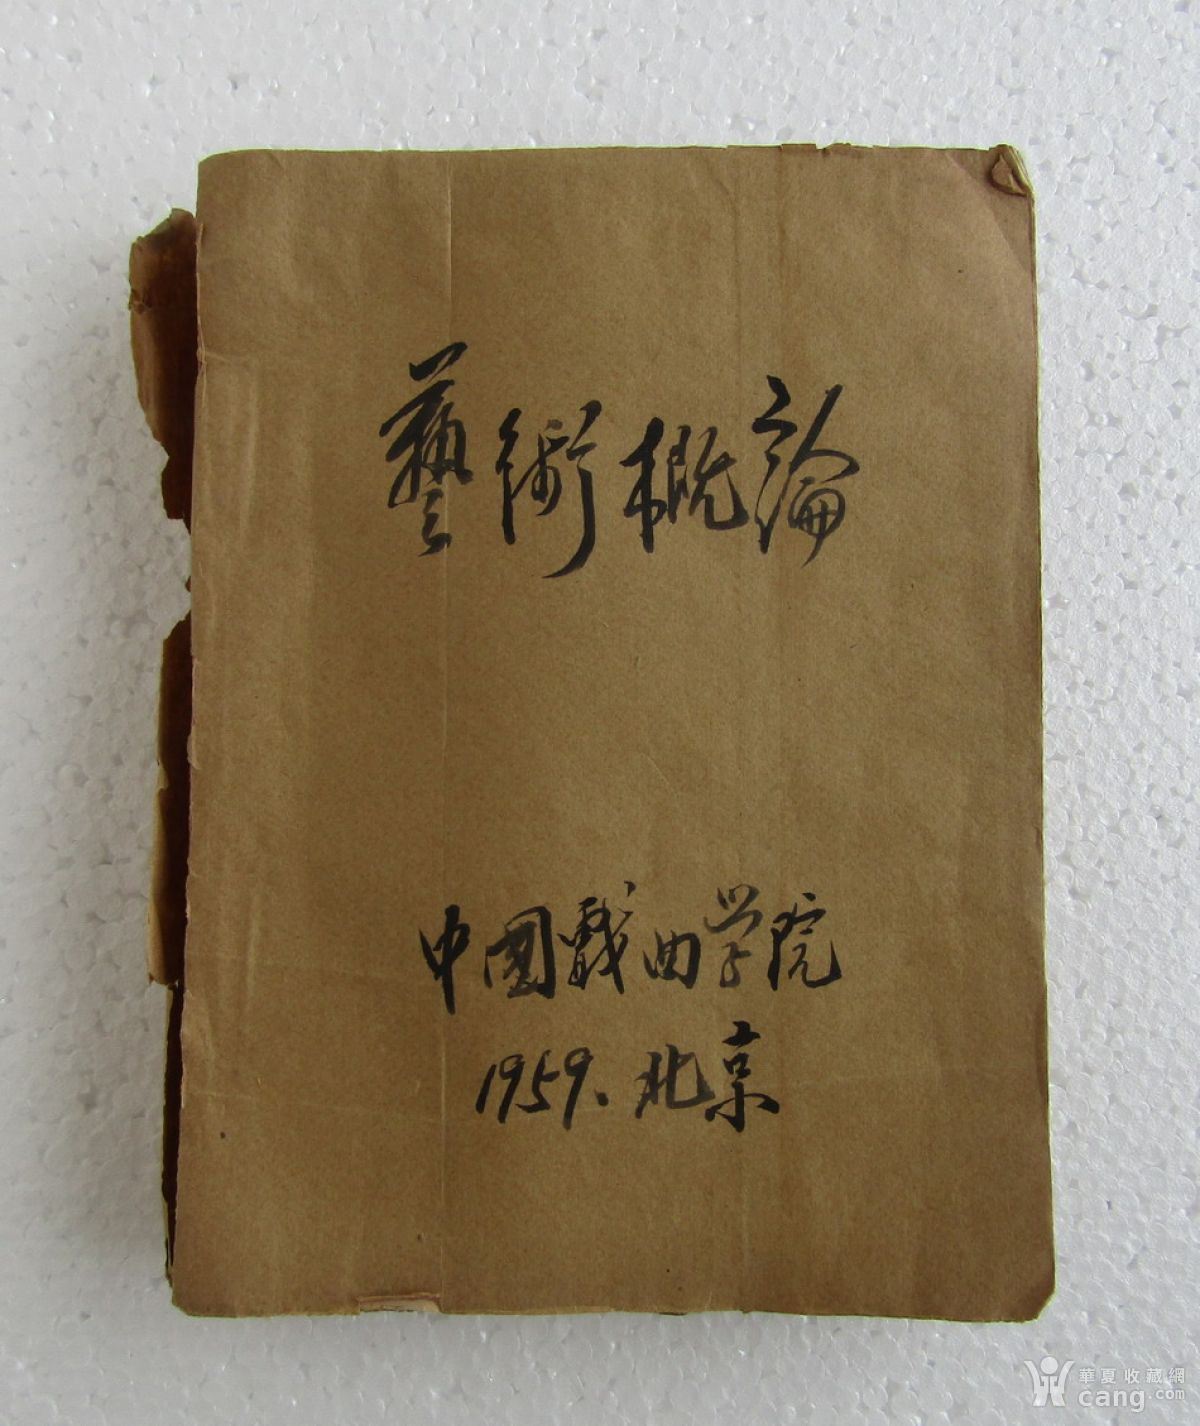 藝術概論
中國戲曲学院
1959. 北京
華夏收藏網
cang.com